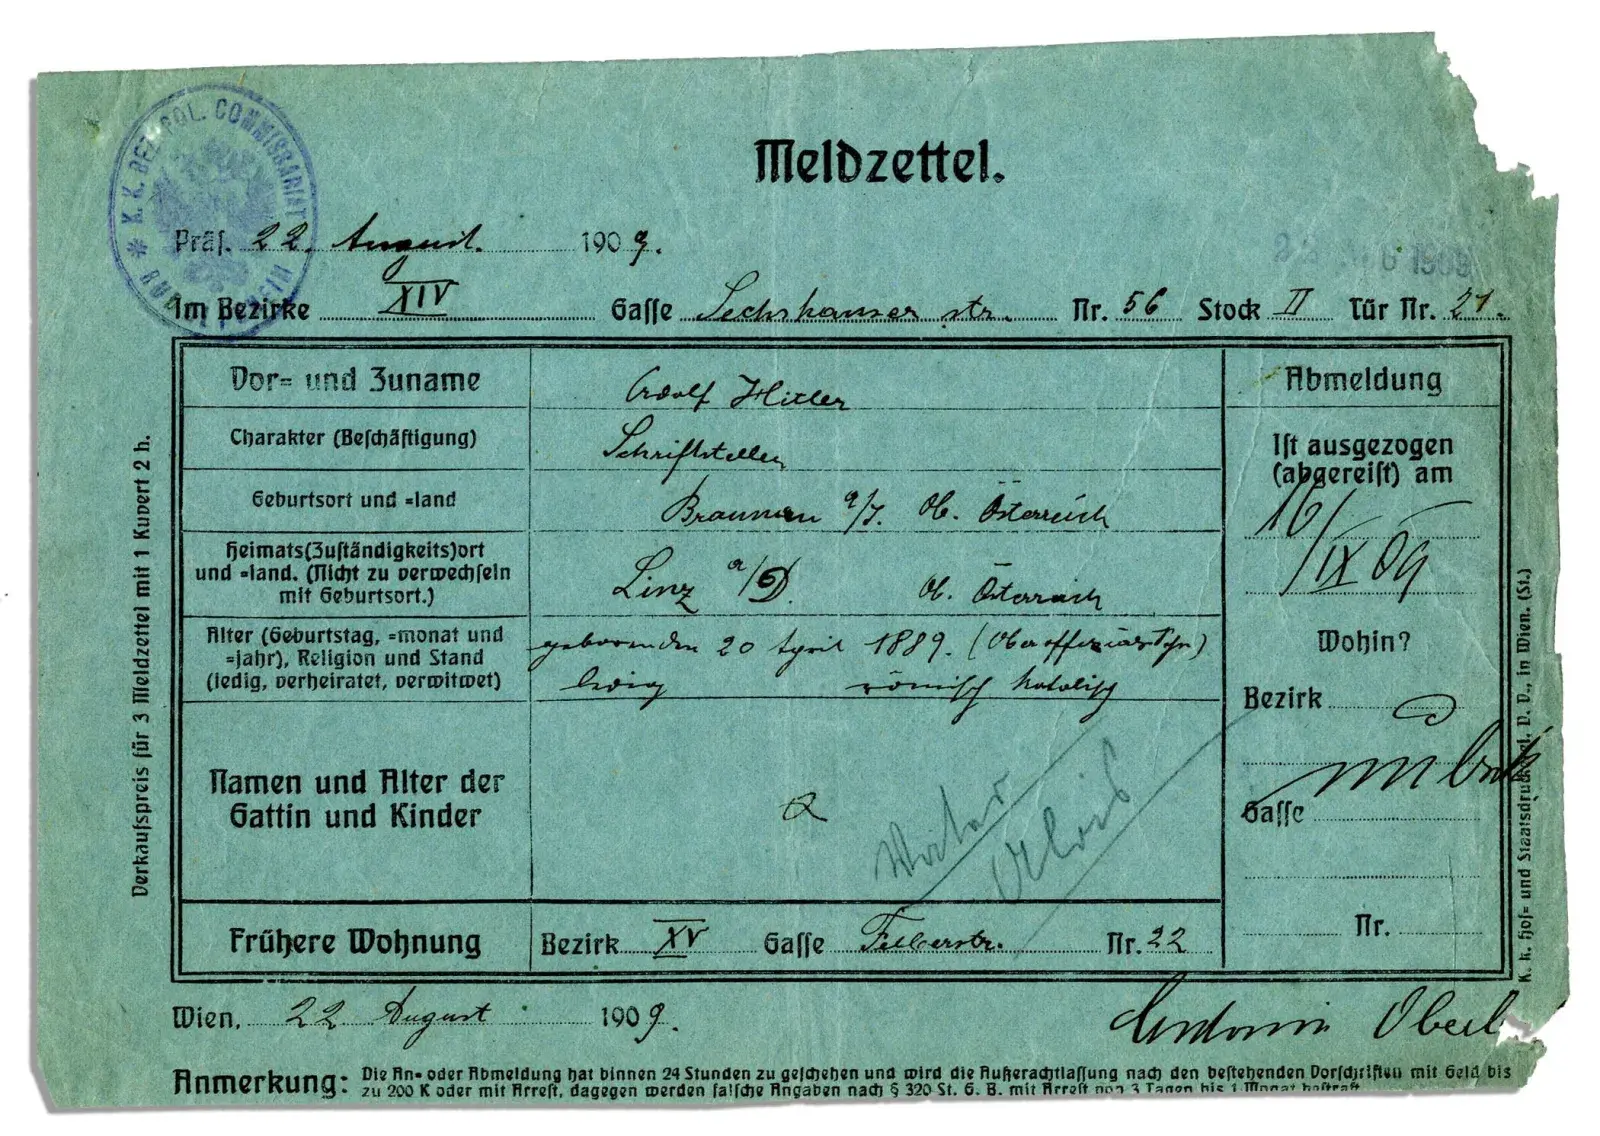 K. K. BEZ. POL. COMMISSARIAT
Meldzettel.
Präs. 22. August. 1909.
Im Bezirke XIV Gasse Sechshauser str. Nr. 56 Stock II Tür Nr. 21.
Vor= und Zuname Adolf Hitler
Charakter (Beschäftigung) Schriftsteller
Geburtsort und =land Braunau a/I. Ob. Österreich
Heimats(Zuständigkeits)ort
und =land. (Nicht zu verwechseln
mit Geburtsort.)
Linz a/D. Ob. Österreich
Alter (Geburtstag, =monat und
=jahr), Religion und Stand
(ledig, verheiratet, verwitwet)
geboren den 20 April 1889. (Oberoffizials Sohn)
ledig römisch katolisch
Namen und Alter der
Gattin und Kinder
Vater
Alois
Frühere Wohnung Bezirk XV Gasse Felberstr. Nr. 22
Abmeldung
Ist ausgezogen
(abgereist) am
16/
IX 09
Wohin?
Bezirk
Gasse
Nr.
Wien, 22 August 1909.
Antonie Oberl
Anmerkung: Die An= oder Abmeldung hat binnen 24 Stunden zu geschehen und wird die Außerachtlassung nach den bestehenden Vorschriften mit Geld bis
zu 200 K oder mit Arrest, dagegen werden falsche Angaben nach § 320 St. G. B. mit Arrest von 3 Tagen bis 1 Monat bestraft.
Verkaufspreis für 3 Meldzettel mit 1 Kuvert 2 h.
K. k. Hof= und Staatsdruckerei, V. V., in Wien. (St.)